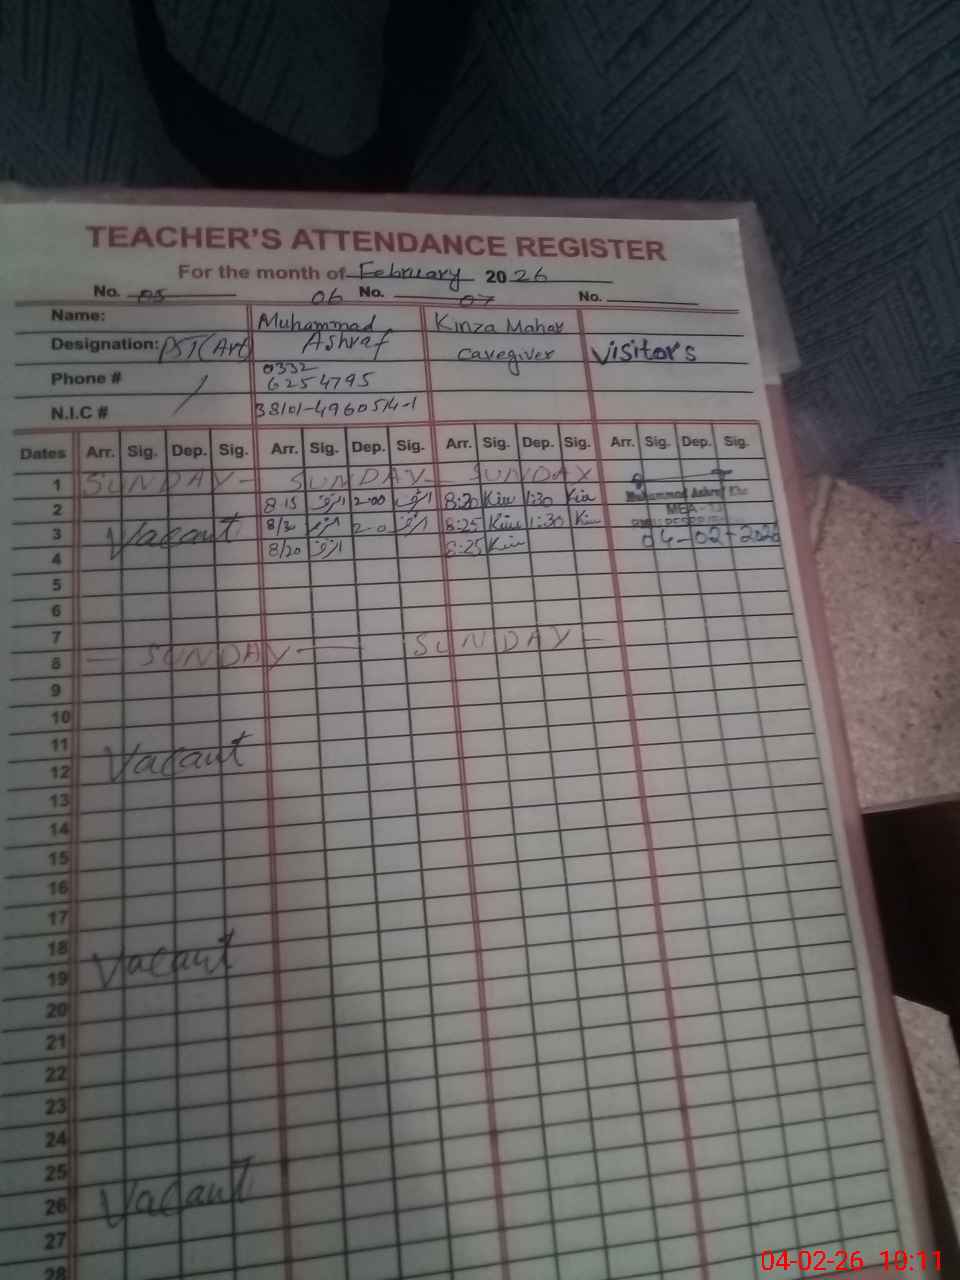 TEACHER'S ATTENDANCE REGISTER
For the month of February 2026
No. 05 06 No. 07 No.
Name: Muhammad Ashraf Kinza Mahar
Designation: PST(Art) Caregiver Visitors
Phone # 0332 6254795
N.I.C # 38101-4960514-1
Dates Arr. Sig. Dep. Sig. Arr. Sig. Dep. Sig. Arr. Sig. Dep. Sig. Arr. Sig. Dep. Sig.
1 SUNDAY - SUNDAY - SUNDAY
Muhammad Ashraf
2 8 15 اشرف 2-00 اشرف 8:20 Kin 1:30 Kin
MEA
3 Vacant 8/20 اشرف 2-0 اشرف 8:25 Kin 1:30
04-02-2026
4 8/20 اشرف 8:25 Kin
5
6
7
8 SUNDAY SUNDAY
9
10
11
Vacant
12
13
14
15
16
17
18
Vacant
19
20
21
22
23
24
25
Vacant
26
27
28
04-02-26 10:11